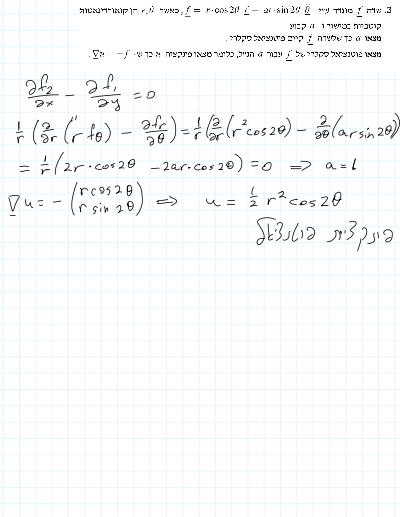 3. שדה f מוגדר ע״י f = r·cos2θ θ̂ + ar·sin2θ r̂, כאשר r, θ הן קואורדינאטות
קוטביות במישור ו- a קבוע.
מצאו a כך שלשדה f קיים פוטנציאל סקלרי.
מצאו פוטנציאל סקלרי של f עבור a הנ״ל, כלומר מצאו פונקציה u כך ש- ∇u = −f.
∂f₂/∂x − ∂f₁/∂y = 0
1/r (∂/∂r (r fθ) − ∂fr/∂θ) = 1/r (∂/∂r (r² cos2θ) − ∂/∂θ (ar sin2θ))
= 1/r (2r·cos2θ − 2ar·cos2θ) = 0 ⇒ a = 1
∇u = −(r cos2θ r sin2θ) ⇒ u = 1/2 r² cos2θ
פונקציית פוטנציאל